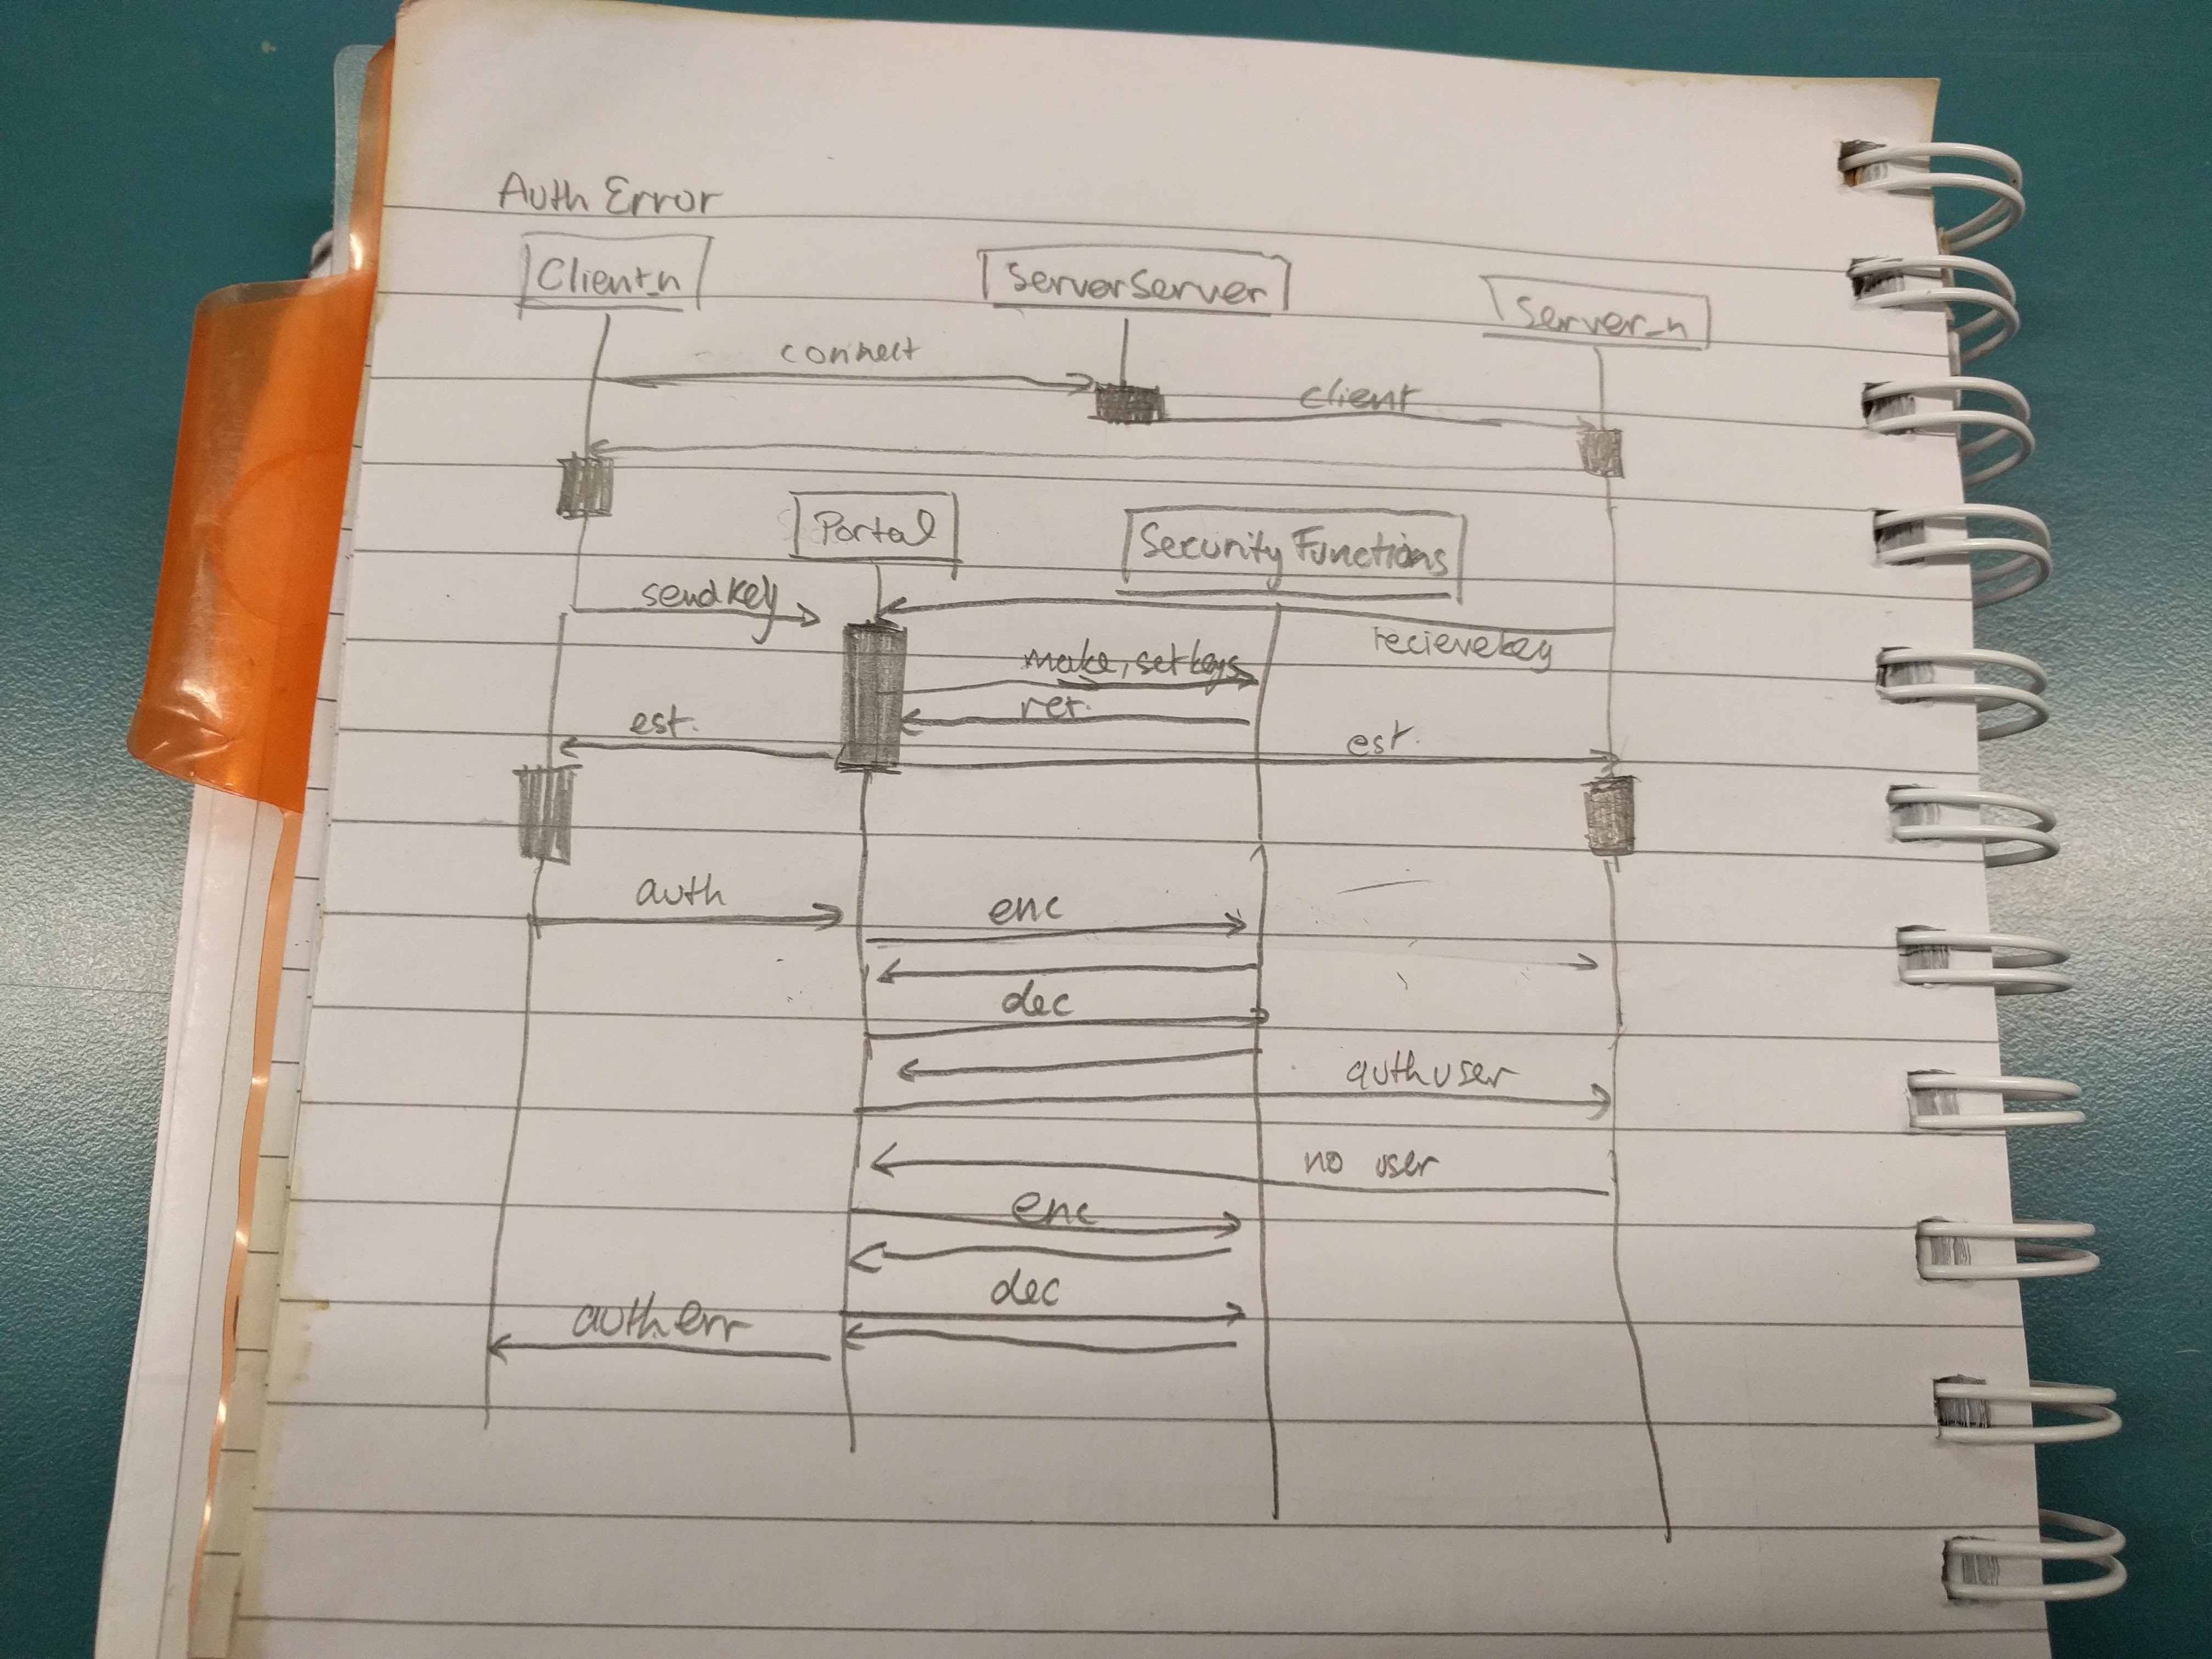 Auth Error
Client_n
ServerServer
Server_n
connect
client
Portal
Security Functions
sendkey
recievekey
make, setkeys
ret.
est.
est.
auth
enc
dec
auth user
no user
enc
dec
auth err